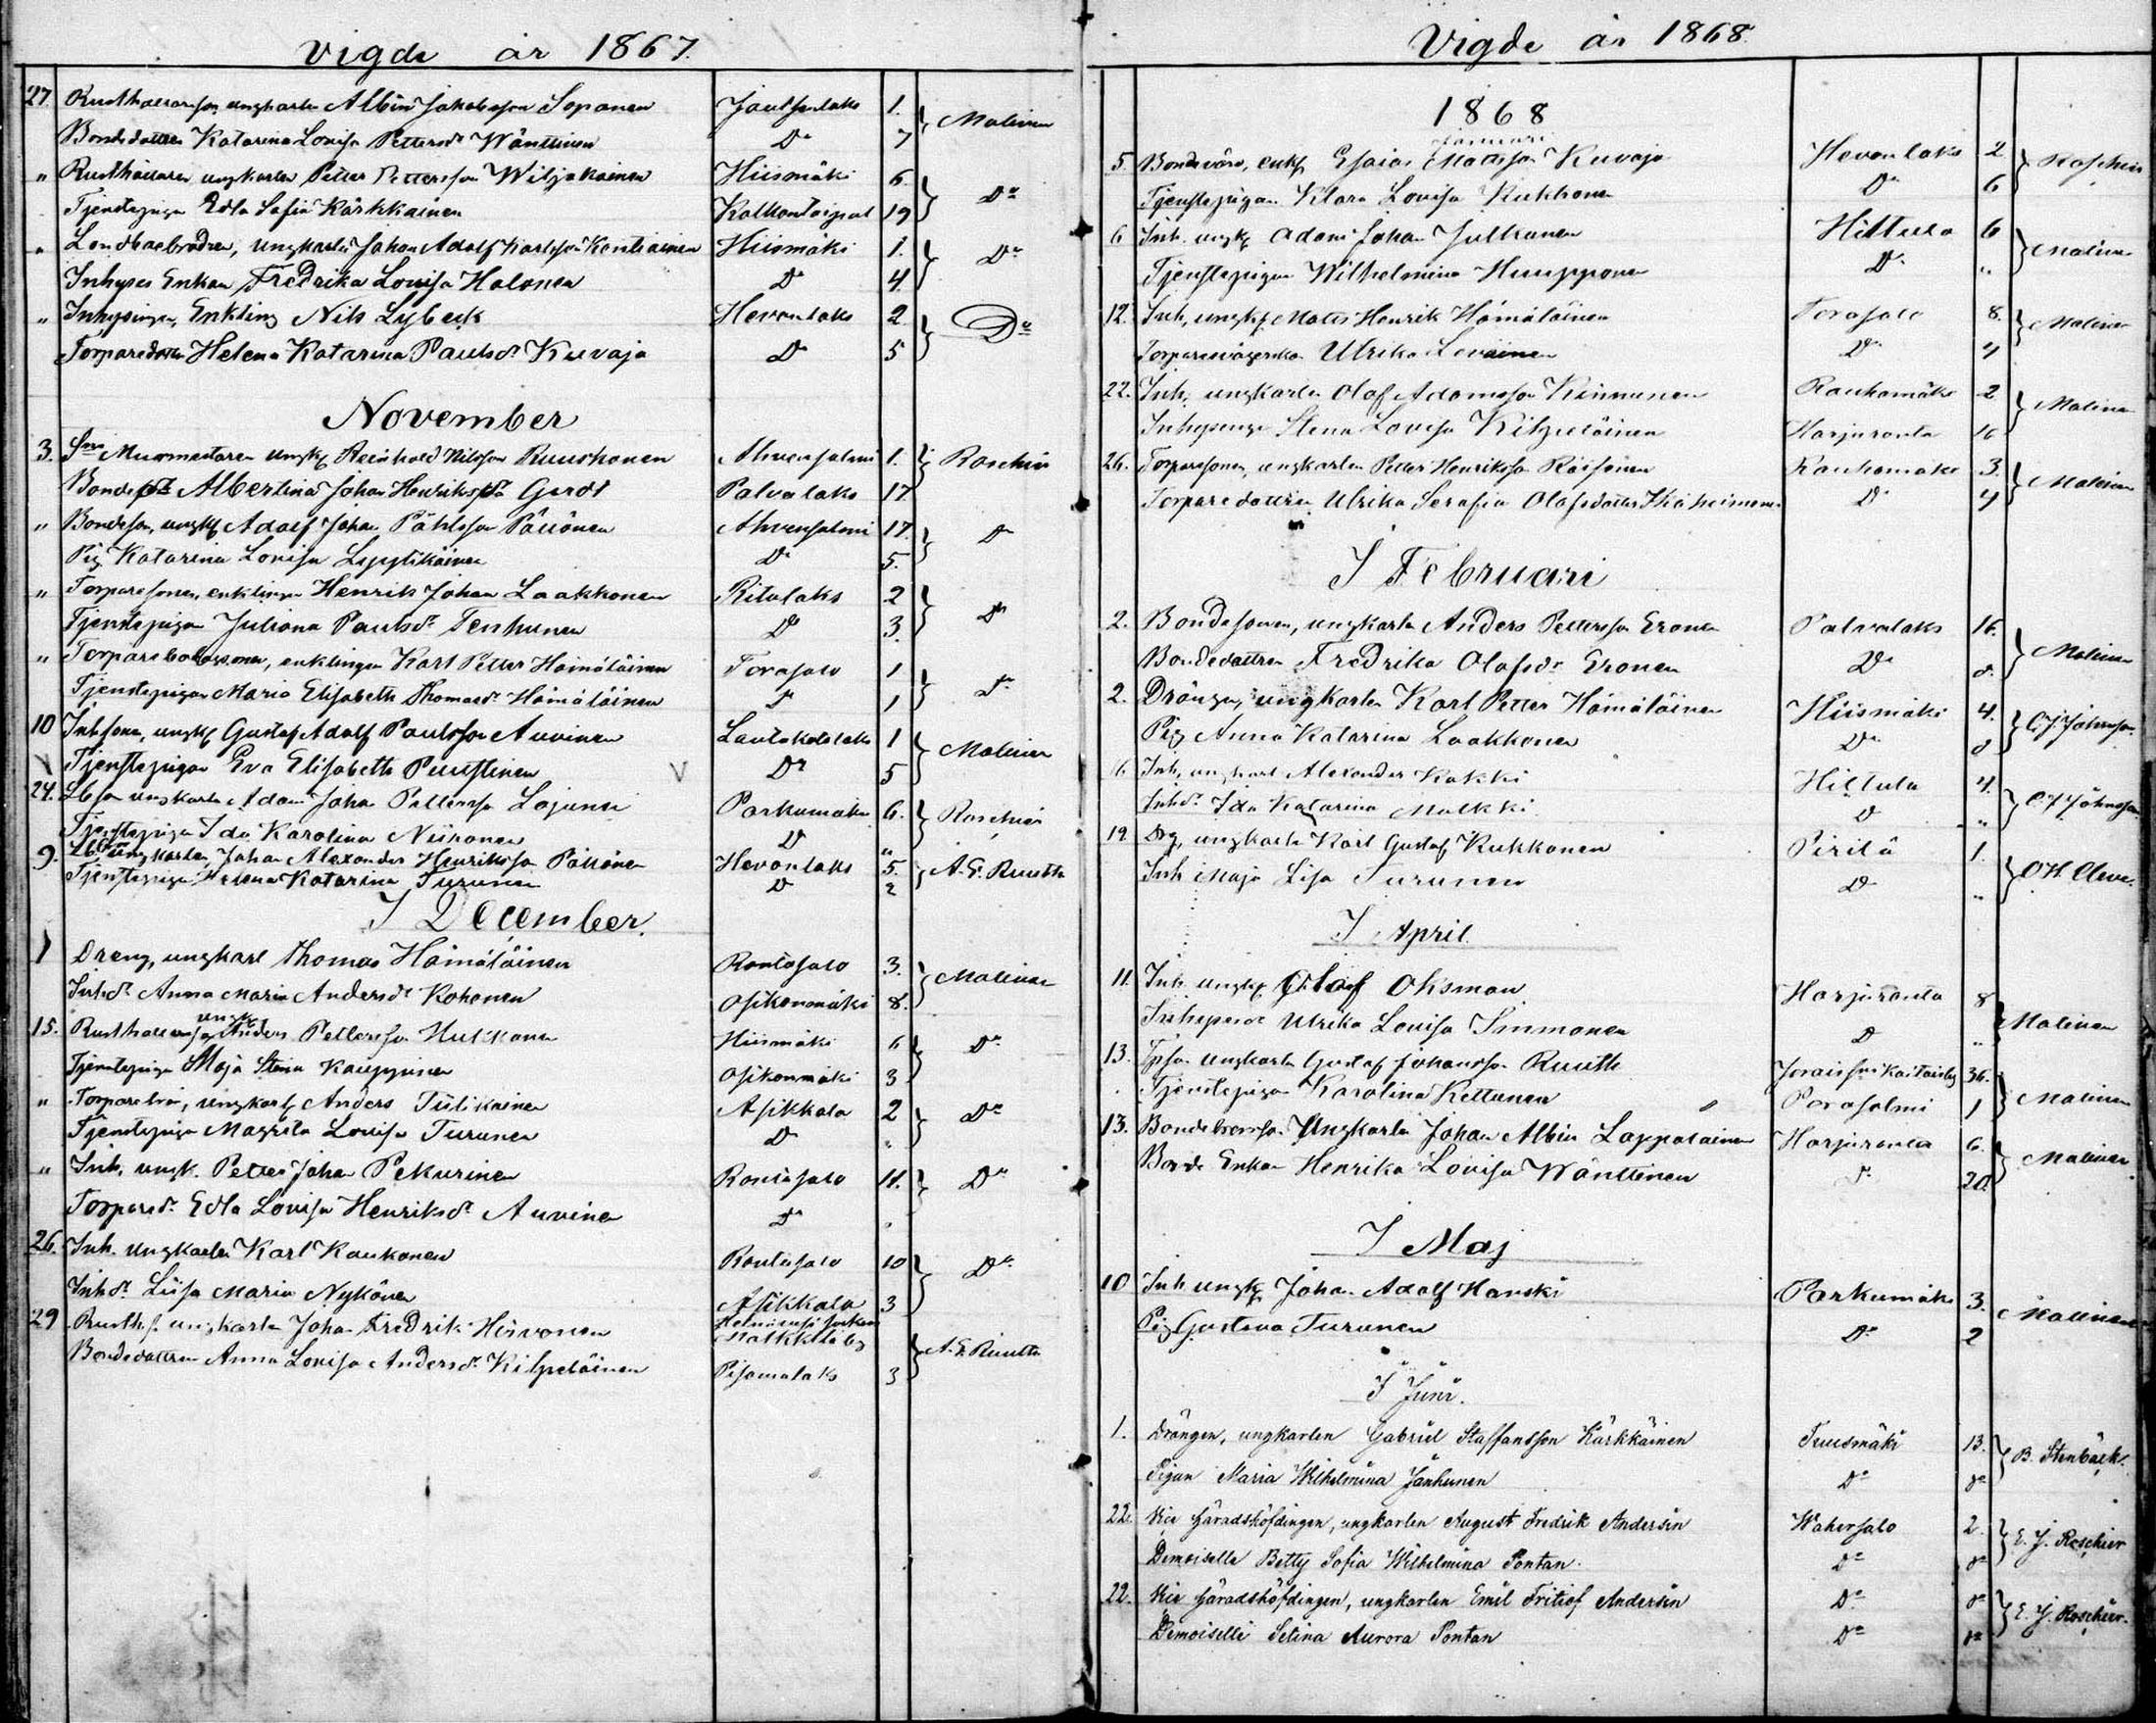 Vigde år 1867.
27. Rusthållaresson, ungkarlen Albin Jakobsson Soponen Jautsenlaks 1. Malinen
Bondedottren Katarina Lovisa Pettersdr Wänttinen Do 7
" Rusthållaren ungkarlen Petter Pettersson Wiljakainen Hiismäki 6. Do
Tjenstepigan Edla Sofia Kärkkäinen Kolkontaipal 19
" Landbobrodren, Ungkarlen Johan Adolf Karlsson Kontiainen Hiismäki 1. Do
Inhyses Enkan Fredrika Lovisa Holonen Do 4.
" Inhysingen, Enkling Nils Lybeck Hevonlaks 2 Do
Torparedottr Helena Katarina Paulsdr Kuvaja Do 5
November
3. Murmästaren ungk Reinhold Nilsson Ruuskonen Ahvensalmi 1. Roschier
Albertina Johan Henriksdr Gerdt Palvalaks 17
" Bondeson, ungk Adolf Johan Påhlsson Pöllönen Ahvensalmi 17. Do
Pig Katarina Lovisa Lyytikäinen Do 5.
" Torparesonen, enklingen Henrik Johan Laakkonen Ritulaks 2 Do
Tjenstepigan Juliana Paulsdr Tenhunen Do 3.
" enklingen Karl Petter Hämäläinen Torasalo 1 Do
Tjenstepigan Maria Elisabeth Thomasdr Hämäläinen Do 1
10 Inhsonen, ungk Gustaf Adolf Paulsson Auvinen Lautakotalaks 1 Malinen
V Tjenstepigan Eva Elisabeth Puustinen V Do 5
24. ungkarlen Adam Johan Pettersson Lajunen Parkumäki 6. Roschier
Tjenstepigan Ida Karolina Niironen Do "
9. Ungkarlen, Johan Alexander Henriksson Pöllönen Hevonlaks 5. A. F. Ruuth
Tjenstepigan Helena Katarina Turunen Do 2
I December.
1 Dreng, ungkarl Thomas Hämäläinen Rantasalo 3. Malinen
Inhdr Anna Maria Andersdr Kohonen Osikonmäki 8.
15. Rusthållareson ungk Anders Pettersson Hukkanen Hiismäki 6 Do
Tjenstepigan Maja Stina Kauppinen Osikonmäki 3
" Torparebror, ungkarl Anders Tiilikainen Asikkala 2 Do
Tjenstepigan Magreta Lovisa Turunen Do "
" Inh. ungk. Petter Johan Pekurinen Rantasalo 11. Do
Torparedr Edla Lovisa Henriksdr Auvinen Do "
26. Inh. Ungkarlen Karl Kaukonen Rantasalo 10 Do
Inhdr Liisa Maria Nykänen Asikkala 3
29 Rusths. ungkarlen Johan Fredrik Hirvonen A. F. Ruuth
Bondedottren Anna Lovisa Andersdr Kilpeläinen Pisamalaks 3
Vigde år 1868.
1868
Januari
5. enkl Esaias Mattsson Kuvaja Hevonlaks 2 Roschier
Tjenstepigan Klara Lovisa Kukkonen Do 6
6 Inh. ungk Adam Johan Julkunen Hiltula 6 Malinen
Tjenstepigan Wilhelmina Huupponen Do "
12. Inh, ungk Matts Henrik Hämäläinen Torasalo 8. Malinen
Torparesvägerskan Ulrika Leväinen Do "
22. Inh. ungkarlen Olof Adamsson Kinnunen Rauhamäki 2 Malinen
Inhysing Stina Lovisa Kilpeläinen Harjuranta 16
26. Torparesonen, ungkarlen Petter Henriksson Räisänen Rauhamäki 3. Malinen
Torparedottren Ulrika Serafia Olofsdotter Do 4
I Februari
2. Bondesonen, ungkarlen Anders Pettersson Eronen Palvalaks 16. Malinen
Bondedottren Fredrika Olofsdr Eronen Do 8.
2. Drängen, ungkarlen Karl Petter Hämäläinen Hiismäki 4. C. J. Johnsson
Pig Anna Katarina Laakkonen Do 8
6 Inh, ungkarl Alexander Kakki Hiltula 4. C. J. Johnsson
Inhdr Ida Katarina Malkki Do "
19. Drg, ungkarlen Karl Gustaf Kukkonen Pirilä 1. O. H. Cleve.
Inh Maja Lisa Turunen Do "
I April.
11. Inh. ungk Olof Oksman Harjuranta 8 Malinen
Ulrika Lovisa Immonen Do "
13. ungkarlen Gustaf Johansson Ruuth 36. Malinen
Tjenstepigan Karolina Kettunen Porosalmi 1
13. Ungkarlen Johan Albin Lappalainen Harjuranta 6. Malinen
Bonde Enkan Henrika Lovisa Wänttinen Do 20.
I Maj
10 Inh ungk Johan Adolf Hanski Parkumäki 3. Malinen
Pig Gustava Turunen Do 2
I Juni.
1. Drängen, ungkarlen Gabriel Staffansson Kärkkäinen Tuusmäki 13. B. Stenbäck.
Pigan Maria Wilhelmina Janhunen Do do
22. Vice Häradshöfdingen, ungkarlen August Fredrik Andersin Wahersalo 2. E. J. Roschier
Demoiselle Betty Sofia Wilhelmina Pontan. Do do
22. Vice Häradshöfdingen, ungkarlen Emil Fritiof Andersin Do do E. J. Roschier.
Demoiselle Selina Aurora Pontan Do do